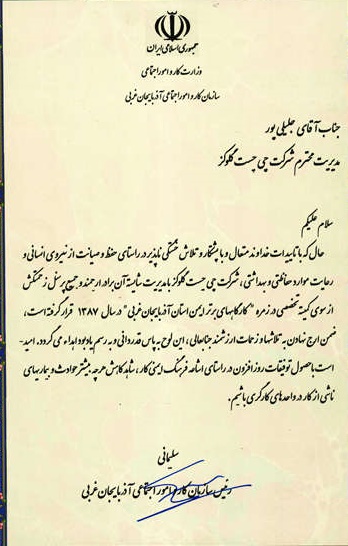 جمهوری اسلامی ایران
وزارت کار و امور اجتماعی
سازمان کار و امور اجتماعی آذربایجان غربی
جناب آقای جلیلی پور
مدیریت محترم شرکت چی چست گلوکز
سلام علیکم
حال که با تاییدات خداوند متعال و با پشتکار و تلاش خستگی ناپذیر در راستای حفظ و صیانت از نیروی انسانی و
رعایت موارد حفاظتی و بهداشتی ، شرکت چی چست گلوکز با مدیریت شایسته آن برادر ارجمند و جمیع پرسنل زحمتکش
از سوی کمیته تخصصی در زمره "کارگاههای برتر ایمن استان آذربایجان غربی" در سال ۱۳۸۷ قرار گرفته است،
ضمن ارج نهادن به تلاشها و زحمات ارزشمند جنابعالی ، این لوح به پاس قدردانی و به رسم یادبود اهداء می گردد. امید-
است با حصول توفیقات روز افزون در راستای اشاعه فرهنگ ایمنی کار ، شاهد کاهش هر چه بیشتر حوادث و بیماریهای
ناشی از کار در واحدهای کارگری باشیم.
سلیمانی
رئیس سازمان کار و امور اجتماعی آذربایجان غربی